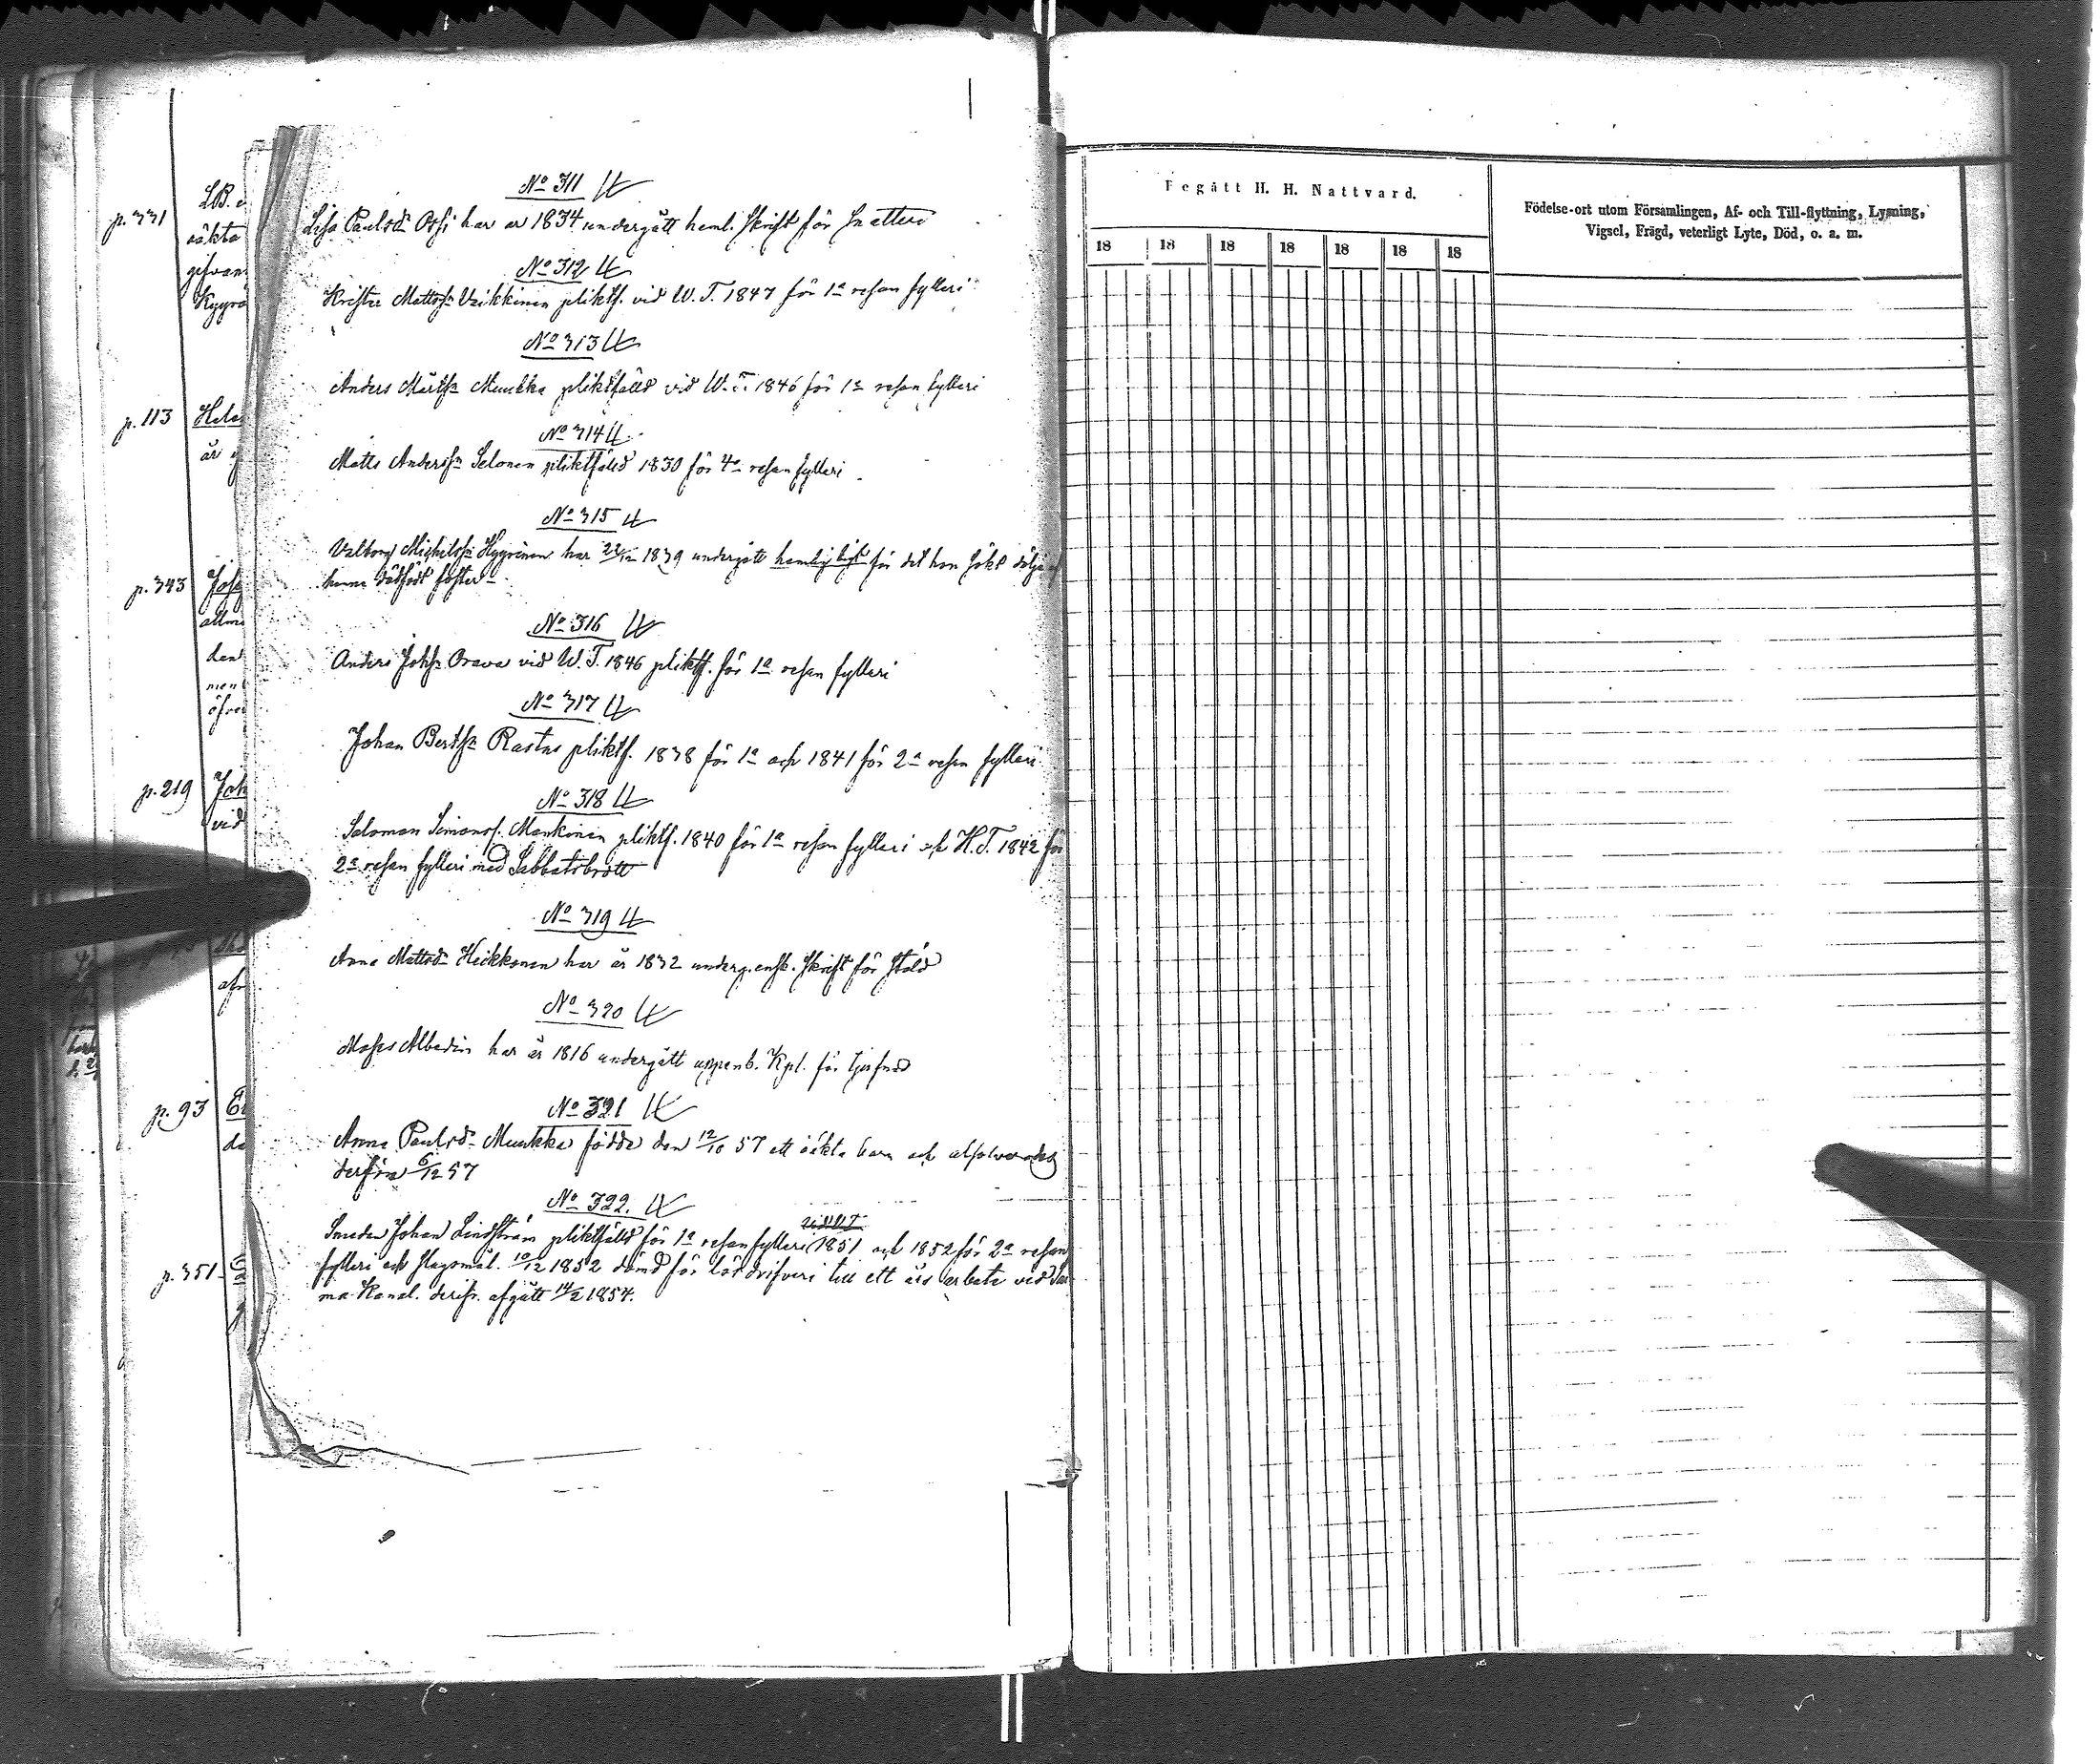 p. 331
L.B.
oäkta
gifvan
Kyyrö
p. 113
Hele
är
p. 343
Joh
allm
den
men
öfver
p. 219
Joh
vid
p. 93
da
p. 351
No 311
Lisa Paulsdr Ossi har år 1834 undergått heml. skrift för Snatteri
No 312
Krister Mattsn Veikkinen pliktf. vid W. T. 1847 för 1a resan fylleri
No 313
Anders Mårtsn Muukka pliktfälld vid W. T. 1846 för 1a resan fylleri
No 314
Matts Andersn Selonen pliktfälld 1830 för 4a resan fylleri
No 315
Valborg Michelsdr Hyyrönen har 22/12 1839 undergått hemlig för det hon sökt dölja
henne dödfödt foster
No 316
Anders Johsn Orava vid W. T. 1846 pliktf. för 1a resan fylleri
No 317
Johan Bertsn Rastas pliktf. 1838 för 1a och 1841 för 2a resan fylleri
No 318
Salomon Simonss. Monkonen pliktf. 1840 för 1a resan fylleri och H. T. 1842 för
2a resan fylleri med Sabbatsbrott
No 319
Anna Mattsdr Heikkonen har år 1832 underg. ensk. skrift för stöld
No 320
Moses Albedin har år 1816 undergått uppenb. Kpl. för tjufnad
No 321
Anna Paulsdr Muukka födde den 12/10 57 ett oäkta barn och absolverades
derföre 6/12 57
No 322.
Smeden Johan Lindström pliktfälld för 1a resan fylleri 1851 och 1852 för 2a resan
fylleri och slagsmål. 10/12 1852 dömd för lösdrifveri till ett års arbete vid Sai
ma Kanal. derifr. afgått 14/2 1854.
Begått H. H. Nattvard.
18 18 18 18 18 18 18
Födelse-ort utom Församlingen, Af- och Till-flyttning, Lysning,
Vigsel, Frägd, veterligt Lyte, Död, o. a. m.